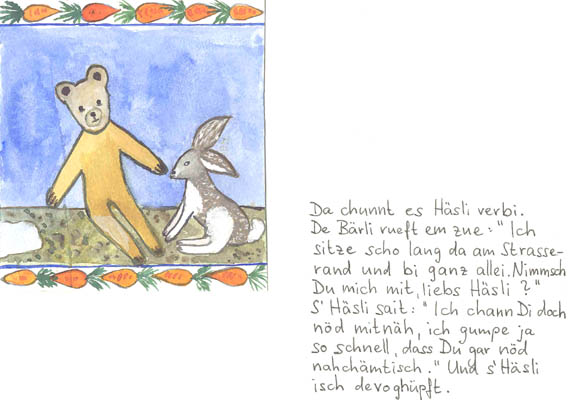 Da chunnt es Häsli verbi.
De Bärli rueft em zue: "Ich
sitze scho lang da am Strasse-
rand und bi ganz allei. Nimmsch
Du mich mit, liebs Häsli?"
S'Häsli sait: "Ich chann Di doch
nöd mitnäh, ich gumpe ja
so schnell, dass Du gar nöd
nahchämtisch." Und s'Häsli
isch devoghüpft.